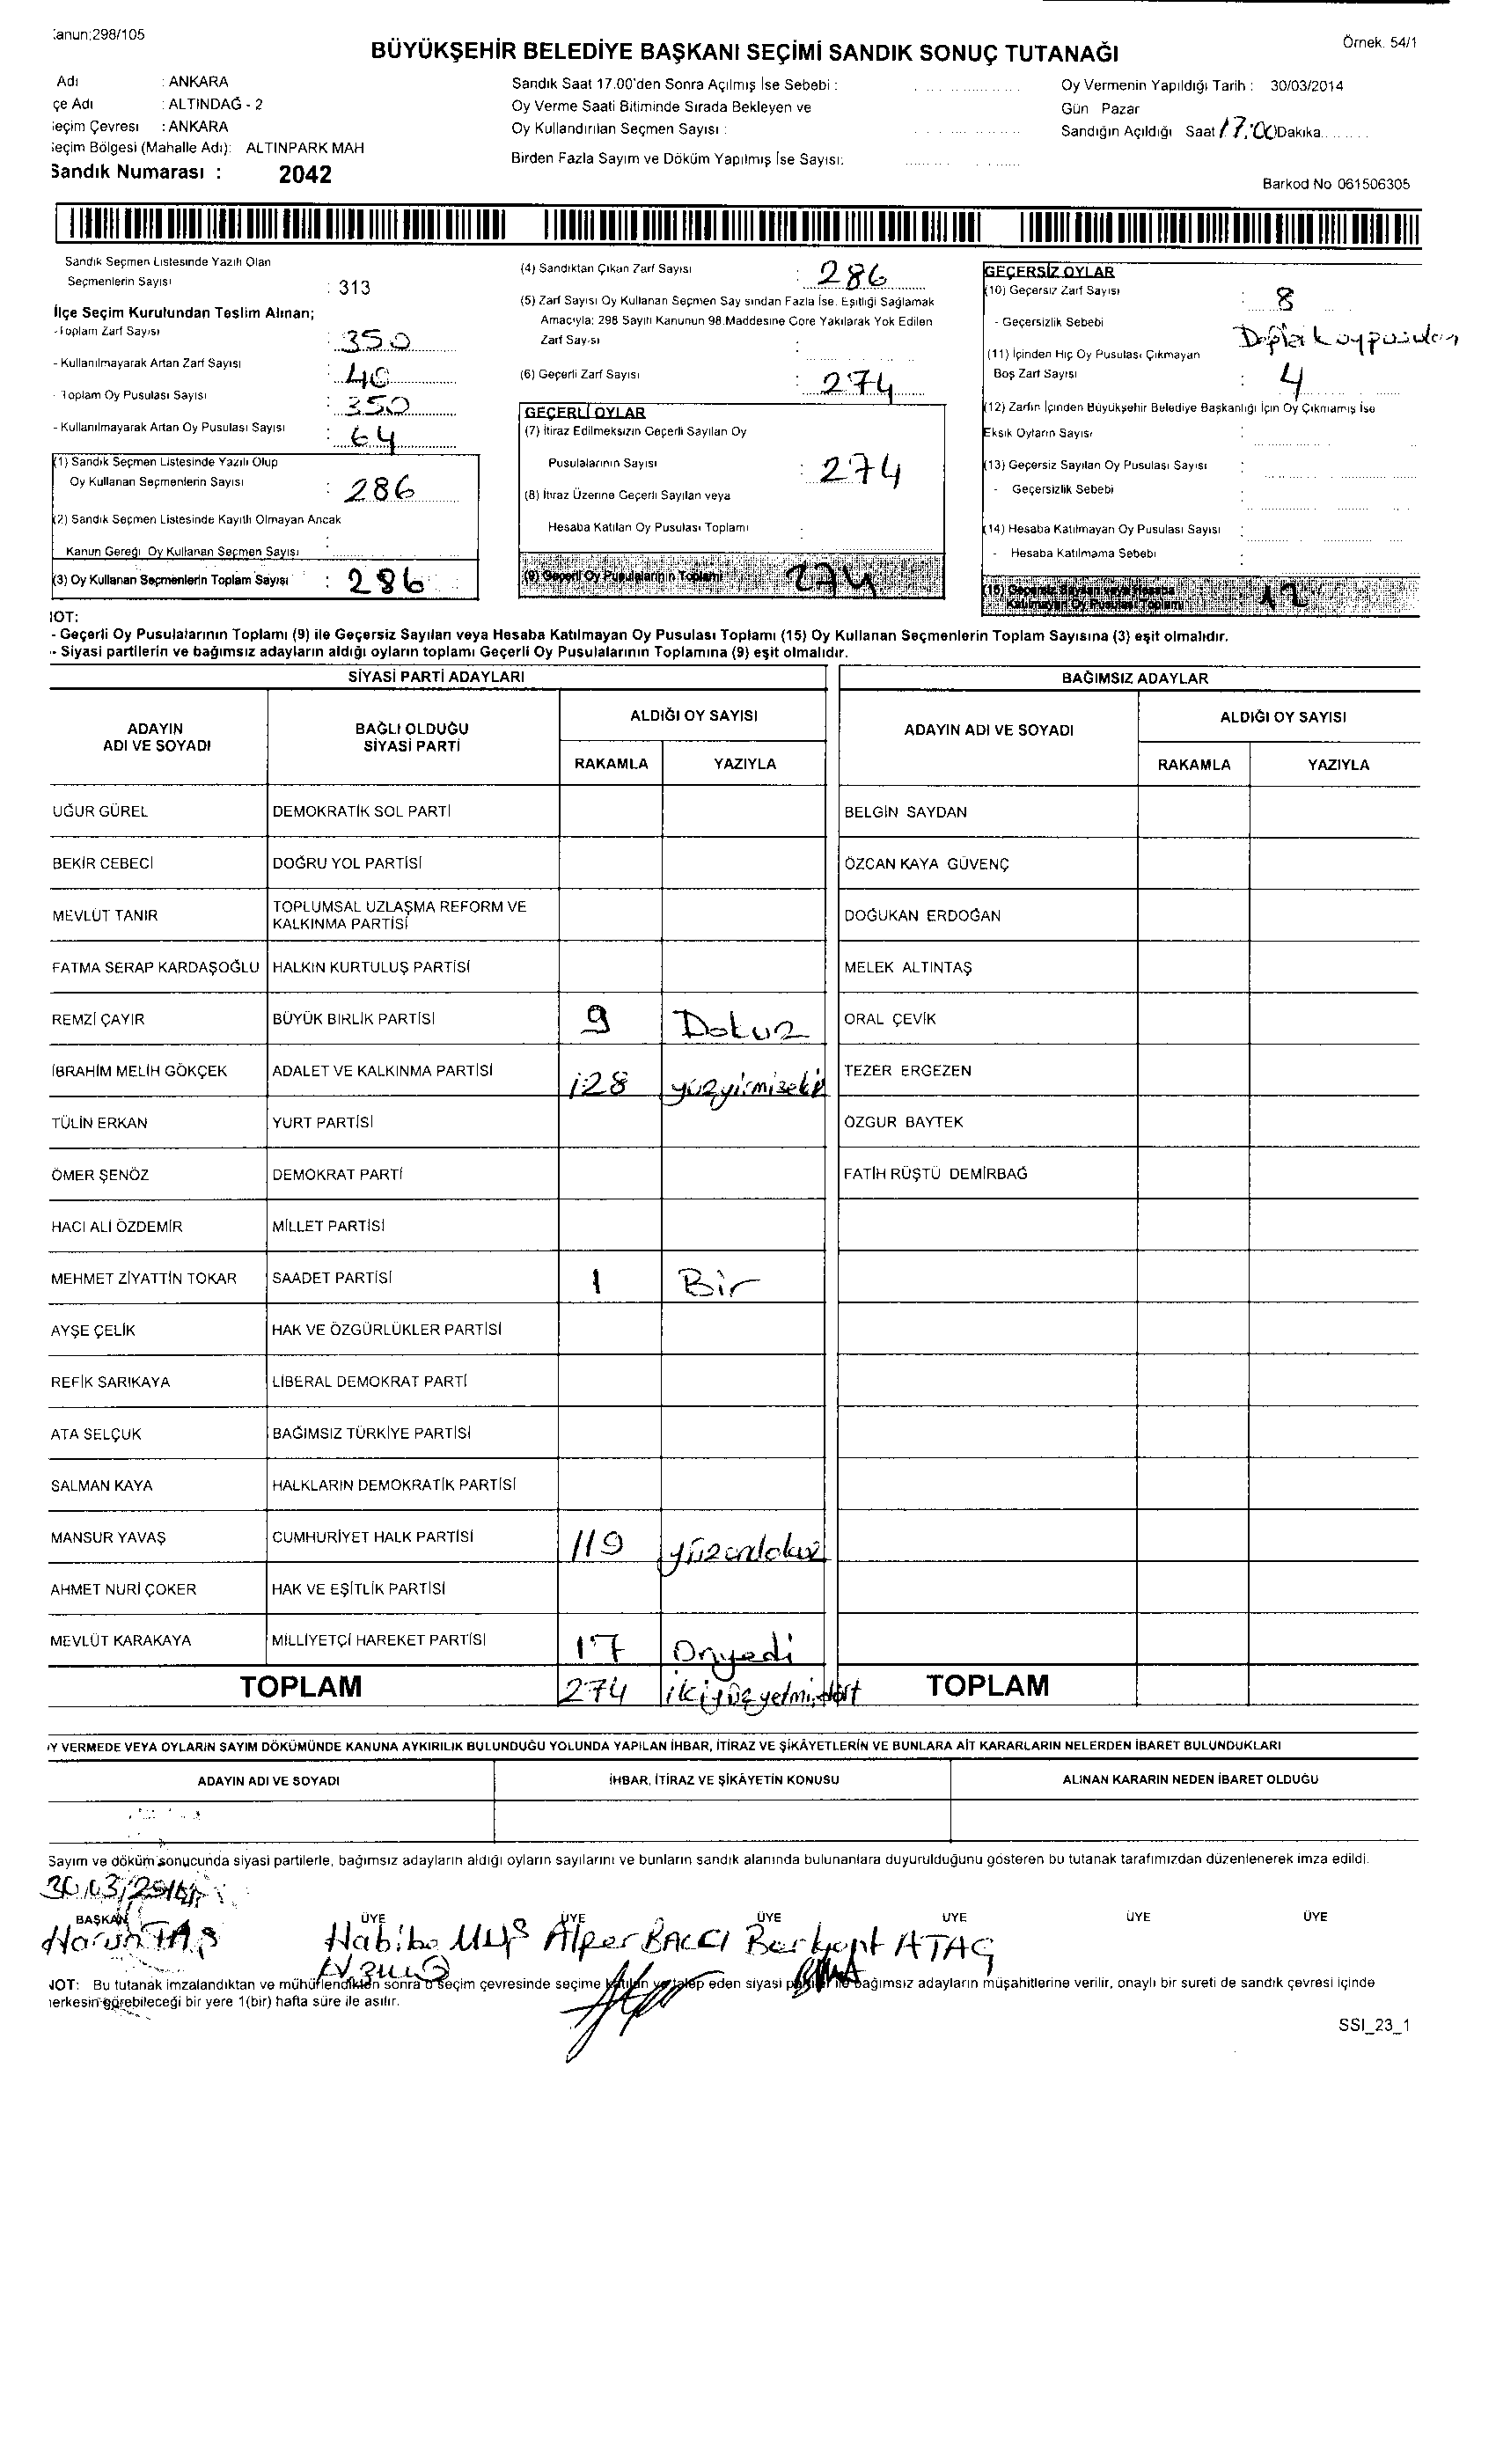 Kanun;298/105
Örnek. 54/1
BÜYÜKŞEHİR BELEDİYE BAŞKANI SEÇİMİ SANDIK SONUÇ TUTANAĞI
Adı : ANKARA
çe Adı : ALTINDAĞ - 2
eçim Çevresi : ANKARA
eçim Bölgesi (Mahalle Adı): ALTINPARK MAH
Sandık Numarası : 2042
Sandık Saat 17.00'den Sonra Açılmış İse Sebebi :
Oy Verme Saati Bitiminde Sırada Bekleyen ve
Oy Kullandırılan Seçmen Sayısı :
Birden Fazla Sayım ve Döküm Yapılmış İse Sayısı:
Oy Vermenin Yapıldığı Tarih : 30/03/2014
Gün Pazar
Sandığın Açıldığı Saat 17:00 Dakika........
Barkod No 061506305
Sandık Seçmen Listesinde Yazılı Olan
Seçmenlerin Sayısı : 313
İlçe Seçim Kurulundan Teslim Alınan;
-Toplam Zarf Sayısı : 350
- Kullanılmayarak Artan Zarf Sayısı :
- Toplam Oy Pusulası Sayısı : 350
- Kullanılmayarak Artan Oy Pusulası Sayısı : 64
(1) Sandık Seçmen Listesinde Yazılı Olup
Oy Kullanan Seçmenlerin Sayısı : 286
(2) Sandık Seçmen Listesinde Kayıtlı Olmayan Ancak
Kanun Gereği Oy Kullanan Seçmen Sayısı :
(3) Oy Kullanan Seçmenlerin Toplam Sayısı : 286
(4) Sandıktan Çıkan Zarf Sayısı : 286
(5) Zarf Sayısı Oy Kullanan Seçmen Sayısından Fazla İse, Eşitliği Sağlamak
Amacıyla; 298 Sayılı Kanunun 98.Maddesine Göre Yakılarak Yok Edilen
Zarf Sayısı :
(6) Geçerli Zarf Sayısı : 274
GEÇERLİ OYLAR
(7) İtiraz Edilmeksizin Geçerli Sayılan Oy
Pusulalarının Sayısı : 274
(8) İtiraz Üzerine Geçerli Sayılan veya
Hesaba Katılan Oy Pusulası Toplamı :
(9) Geçerli Oy Pusulalarının Toplamı 274
GEÇERSİZ OYLAR
(10) Geçersiz Zarf Sayısı : 8
- Geçersizlik Sebebi
(11) İçinden Hiç Oy Pusulası Çıkmayan
Boş Zarf Sayısı : 4
(12) Zarfın İçinden Büyükşehir Belediye Başkanlığı İçin Oy Çıkmamış İse
Eksik Oyların Sayısı :
(13) Geçersiz Sayılan Oy Pusulası Sayısı :
- Geçersizlik Sebebi :
(14) Hesaba Katılmayan Oy Pusulası Sayısı :
- Hesaba Katılmama Sebebi :
(15) Geçersiz Sayılan veya Hesaba
Katılmayan Oy Pusulası Toplamı 12
NOT:
- Geçerli Oy Pusulalarının Toplamı (9) ile Geçersiz Sayılan veya Hesaba Katılmayan Oy Pusulası Toplamı (15) Oy Kullanan Seçmenlerin Toplam Sayısına (3) eşit olmalıdır.
- Siyasi partilerin ve bağımsız adayların aldığı oyların toplamı Geçerli Oy Pusulalarının Toplamına (9) eşit olmalıdır.
SİYASİ PARTİ ADAYLARI BAĞIMSIZ ADAYLAR
ADAYIN ADI VE SOYADI BAĞLI OLDUĞU SİYASİ PARTİ ALDIĞI OY SAYISI ADAYIN ADI VE SOYADI ALDIĞI OY SAYISI
RAKAMLA YAZIYLA RAKAMLA YAZIYLA
UĞUR GÜREL DEMOKRATİK SOL PARTİ BELGİN SAYDAN
BEKİR CEBECİ DOĞRU YOL PARTİSİ ÖZCAN KAYA GÜVENÇ
MEVLÜT TANIR TOPLUMSAL UZLAŞMA REFORM VE KALKINMA PARTİSİ DOĞUKAN ERDOĞAN
FATMA SERAP KARDAŞOĞLU HALKIN KURTULUŞ PARTİSİ MELEK ALTINTAŞ
REMZİ ÇAYIR BÜYÜK BİRLİK PARTİSİ 9 Dokuz ORAL ÇEVİK
İBRAHİM MELİH GÖKÇEK ADALET VE KALKINMA PARTİSİ 128 yüzyirmisekiz TEZER ERGEZEN
TÜLİN ERKAN YURT PARTİSİ ÖZGÜR BAYTEK
ÖMER ŞENÖZ DEMOKRAT PARTİ FATİH RÜŞTÜ DEMİRBAĞ
HACI ALİ ÖZDEMİR MİLLET PARTİSİ
MEHMET ZİYATTİN TOKAR SAADET PARTİSİ 1 Bir
AYŞE ÇELİK HAK VE ÖZGÜRLÜKLER PARTİSİ
REFİK SARIKAYA LİBERAL DEMOKRAT PARTİ
ATA SELÇUK BAĞIMSIZ TÜRKİYE PARTİSİ
SALMAN KAYA HALKLARIN DEMOKRATİK PARTİSİ
MANSUR YAVAŞ CUMHURİYET HALK PARTİSİ 119 yüzondokuz
AHMET NURİ ÇOKER HAK VE EŞİTLİK PARTİSİ
MEVLÜT KARAKAYA MİLLİYETÇİ HAREKET PARTİSİ 17 Onyedi
TOPLAM 274 ikiyüzyetmişdört TOPLAM
Y VERMEDE VEYA OYLARIN SAYIM DÖKÜMÜNDE KANUNA AYKIRILIK BULUNDUĞU YOLUNDA YAPILAN İHBAR, İTİRAZ VE ŞİKÂYETLERİN VE BUNLARA AİT KARARLARIN NELERDEN İBARET BULUNDUKLARI
ADAYIN ADI VE SOYADI İHBAR, İTİRAZ VE ŞİKÂYETİN KONUSU ALINAN KARARIN NEDEN İBARET OLDUĞU
Sayım ve döküm sonucunda siyasi partilerle, bağımsız adayların aldığı oyların sayılarını ve bunların sandık alanında bulunanlara duyurulduğunu gösteren bu tutanak tarafımızdan düzenlenerek imza edildi.
30/03/2014
BAŞKAN ÜYE ÜYE ÜYE ÜYE ÜYE ÜYE
Harun TAŞ Habibe Alper BAĞCI Berkant ATAÇ
NOT: Bu tutanak imzalandıktan ve mühürlendikten sonra o seçim çevresinde seçime katılan ve talep eden siyasi partiler ile bağımsız adayların müşahitlerine verilir, onaylı bir sureti de sandık çevresi içinde
herkesin görebileceği bir yere 1(bir) hafta süre ile asılır.
SSI_23_1